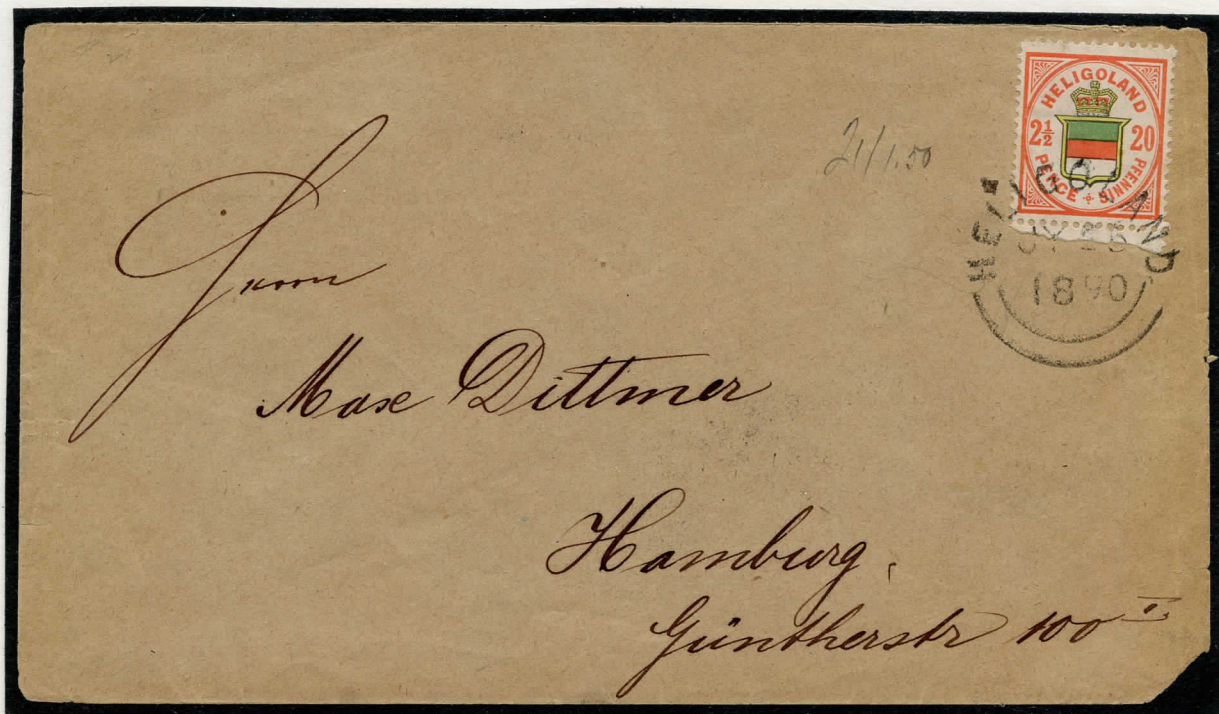 HELIGOLAND
2½ 20
PENCE PFENNIG
HELIGOLAND
JY 25
1890
Herrn
Max Dittmer
Hamburg.
Güntherstr 100 II.